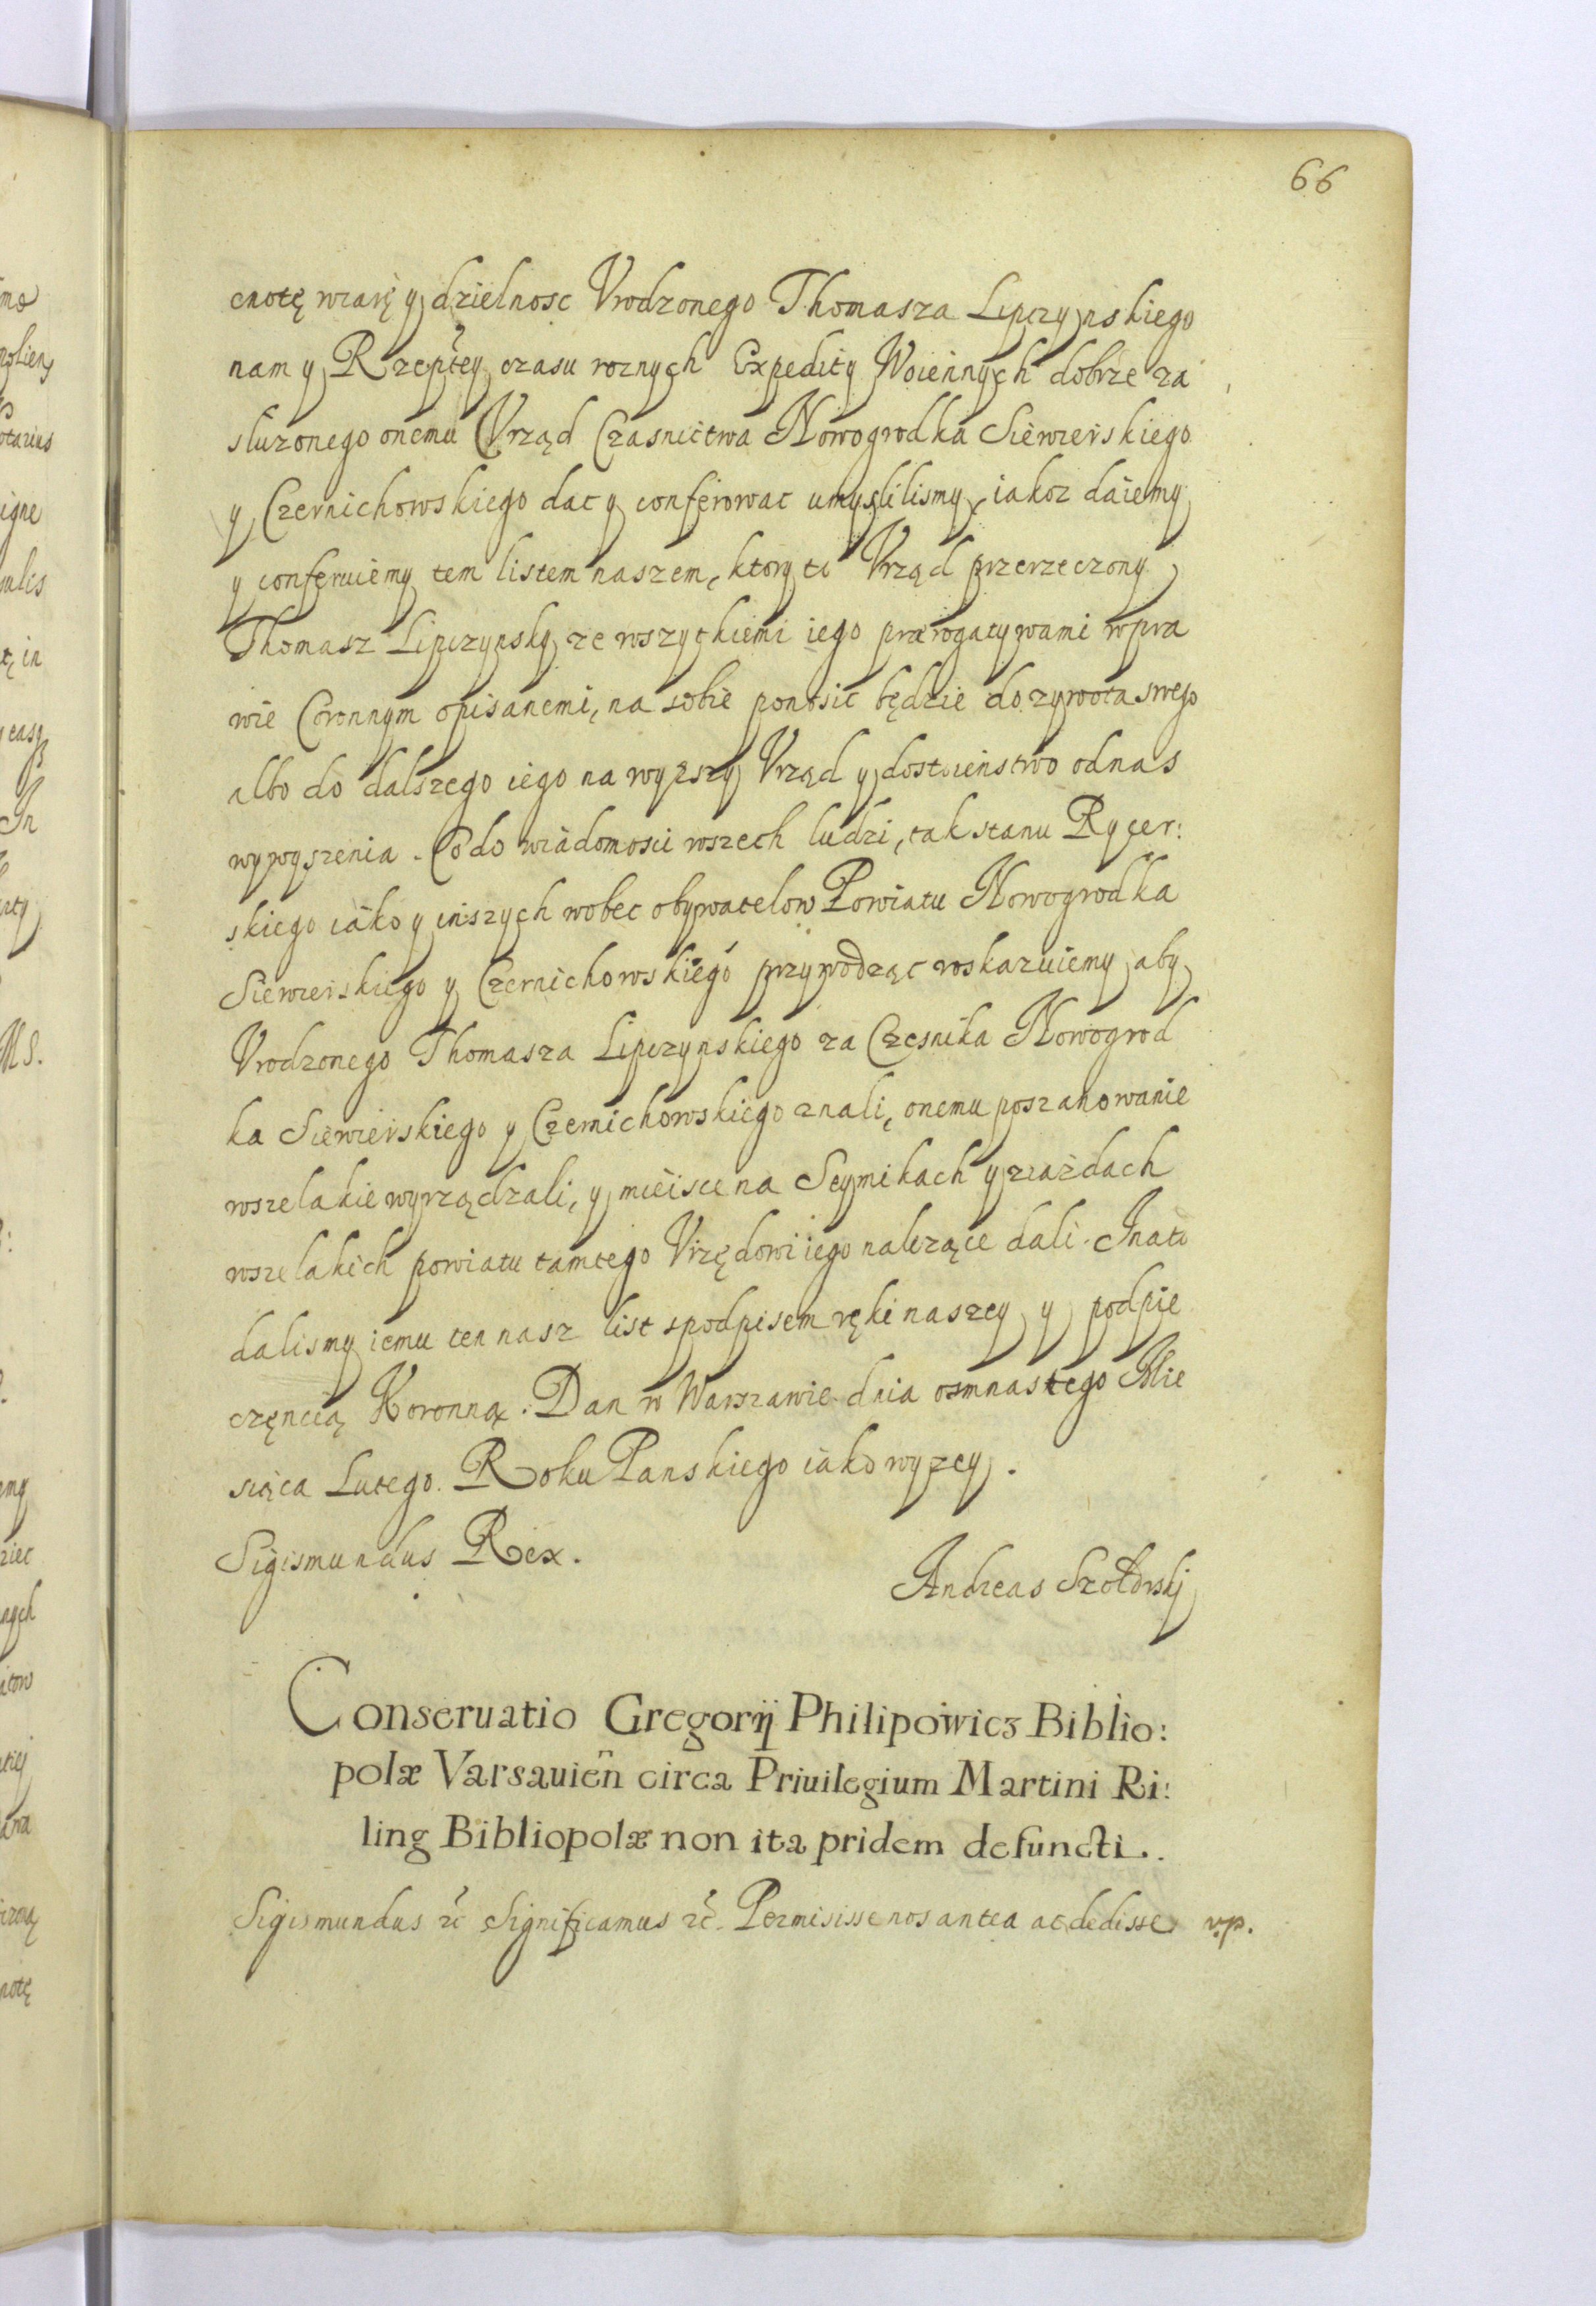 66
cnotę wiarę y dzielnosc Vrodzonego Thomasza Lipczynskiego
nam y Rzeptey czasu roznych Expedity Woiennych dobrze za
sluzonego onemu Vrząd Czasnictwa Nowogrodka Siewierskiego
y Czernichowskiego dac y conferowac umyslilismy, iakoz daiemy
y conferuiemy tem listem naszem, ktory to Vrząd przerzeczony
Thomasz Lipczynsky ze wszytkiemi iego prærogatywami w pra
wie Coronnym opisanemi, na sobie ponosic będzie do zywota swego
albo do dalszego iego na wyzszy Vrząd y dostoienstwo od nas
wywyszenia. Co do wiadomosci wszech ludzi, tak stanu Rycer:
skiego iako y inszych wobec obywatelow Powiatu Nowogrodka
Siewierskiego y Czernichowskiego przywodząc roskazuiemy aby
Vrodzonego Thomasza Lipczynskiego za Czesnika Nowogrod
ka Siewierskiego y Czernichowskiego znali, onemu poszanowanie
wszelakie wyrządzali, y mieisce na Seymikach y ziazdach
wszelakich powiatu tamtego Vrzędowi iego nalezące dali. Inato
dalismy iemu ten nasz list spodpisem ręki naszey y podpie
częncią Koronną. Dan w Warszawie dnia osmnastego Mie
siąca Lutego. Roku Panskiego iako wyzey.
Sigismundus Rex.
Andreas Szołdrskj
Conseruatio Gregorij Philipowicz Biblio:
polæ Varsauien circa Priuilegium Martini Ri:
ling Bibliopolæ non ita pridem defuncti..
Sigismundus &c Significamus &c. Permisisse nos antea ac dedisse v.p.